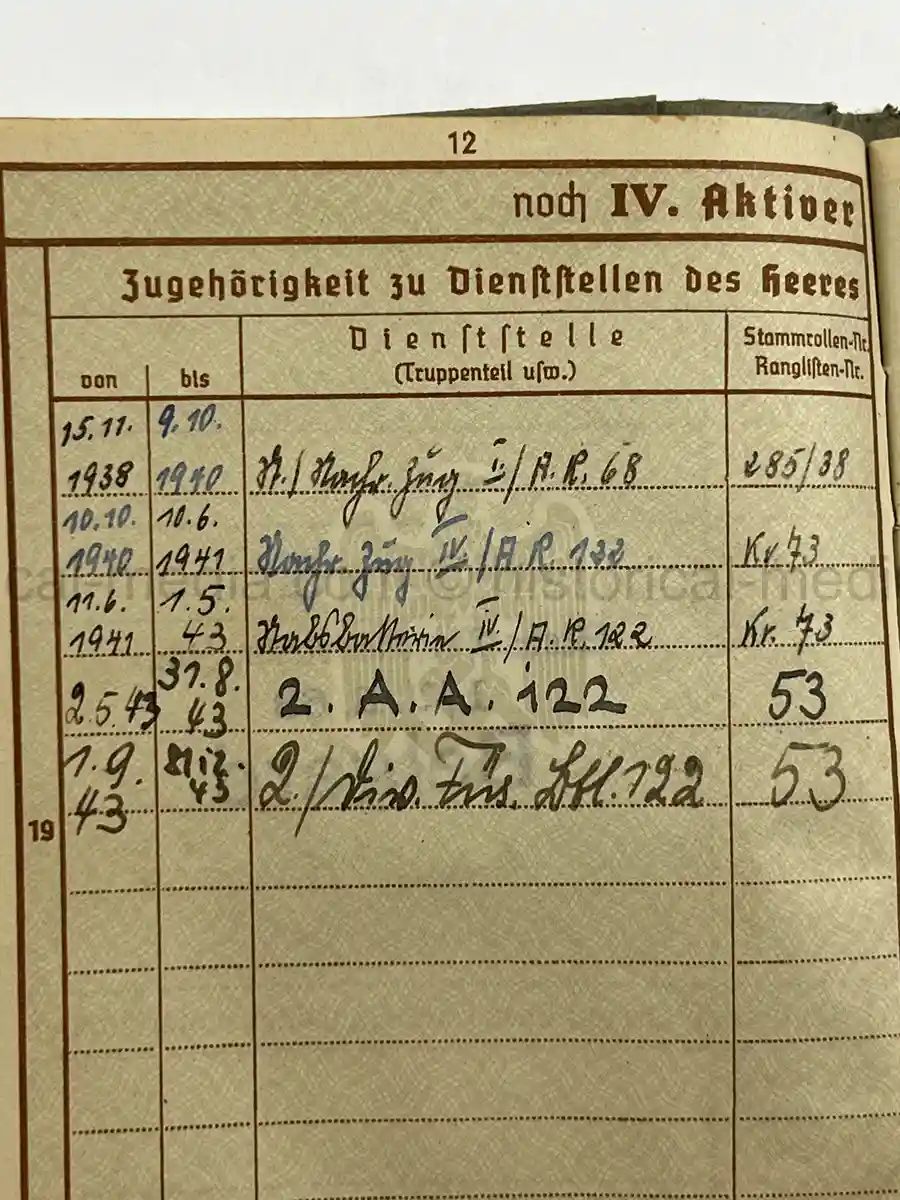 12
noch IV. Aktiver
Zugehörigkeit zu Dienststellen des Heeres
von bis
Dienststelle
(Truppenteil usw.)
Stammrollen-Nr.
Ranglisten-Nr.
15.11. 9.10.
1938 1940 N./Nachr. Zug I/A.R. 68 285/38
10.10. 10.6.
1940 1941 Nachr. Zug IV/A R. 122 Kr 73
11.6. 1.5.
1941 43 Stabsbatterie IV/A.R. 122 Kr. 73
2.5.43 31.8.
43 2. A.A. 122 53
1.9. 43
43 2./Div. Füs. Btl. 122 53
19